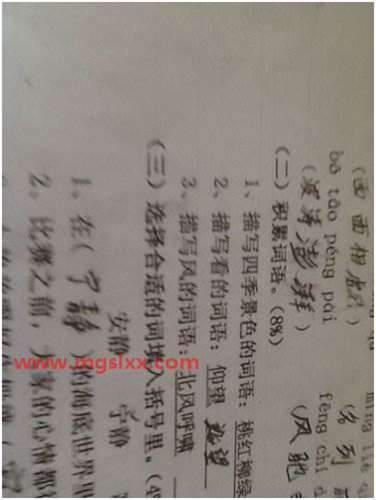 (面面相觑)
míng liè
(名列
bō tāo péng pài
fēng chí
(波涛澎湃)
(风驰
(二)积累词语。(8%)
1、描写四季景色的词语:桃红柳绿
2、描写看的词语:仰望
3、描写风的词语:北风呼啸
(三)选择合适的词填入括号里。(
安静 宁静
1、在(宁静)的海底世界里
2、比赛之前,大家的心情都
www.mgslxx.com